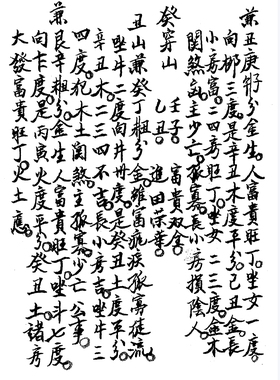 兼丑庚𢇁分金生人富貴旺丁坐女一度
向柳三度是辛丑木度平分己丑金長
小房富二四房旺丁坐女二三度金木
関煞向主少亡孤寡長小房損陰人
癸穿山 壬子富貴双全
乙丑進田荣華
丑山兼癸丁粗分金雖富疾孤寡徒流
坐牛二度向井卅度是癸丑土度平分
辛丑木一二三四不吉長小房吉坐牛三
四度犯木土関煞主孤寡少亡公事
兼艮辛粗分金生人富貴旺丁坐斗七度
向 度是丙寅火度平分癸丑土諸房
大發富貴旺丁火土應